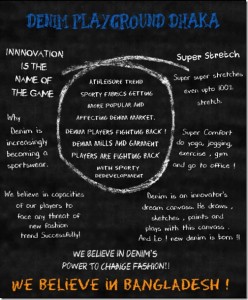 DENIM PLAYGROUND DHAKA
INNNOVATION
IS THE
NAME OF
THE GAME
Why
Denim is
increasingly
becoming a
sportswear.
ATHLEISURE TREND
SPORTY FABRICS GETTING
MORE POPULAR AND
AFFECTING DENIM MARKET.
DENIM PLAYERS FIGHTING BACK !
DENIM MILLS AND GARMENT
PLAYERS ARE FIGHTING BACK
WITH SPORTY
DEDEVELOPMENT
Super Stretch
Super super stretches
even upto 100%
stretch.
Super Comfort
do yoga, jogging,
exercise , gym
and go to office !
We believe in capacities
of our players to
face any threat of
new fashion
trend Successfully!
Denim is an innovator's
dream canvass. He draws ,
sketches , paints and
plays with this canvass .
And Lo ! new denim is born !!
WE BELIEVE IN DENIM'S
POWER TO CHANGE FASHION!!
WE BELIEVE IN BANGLADESH !